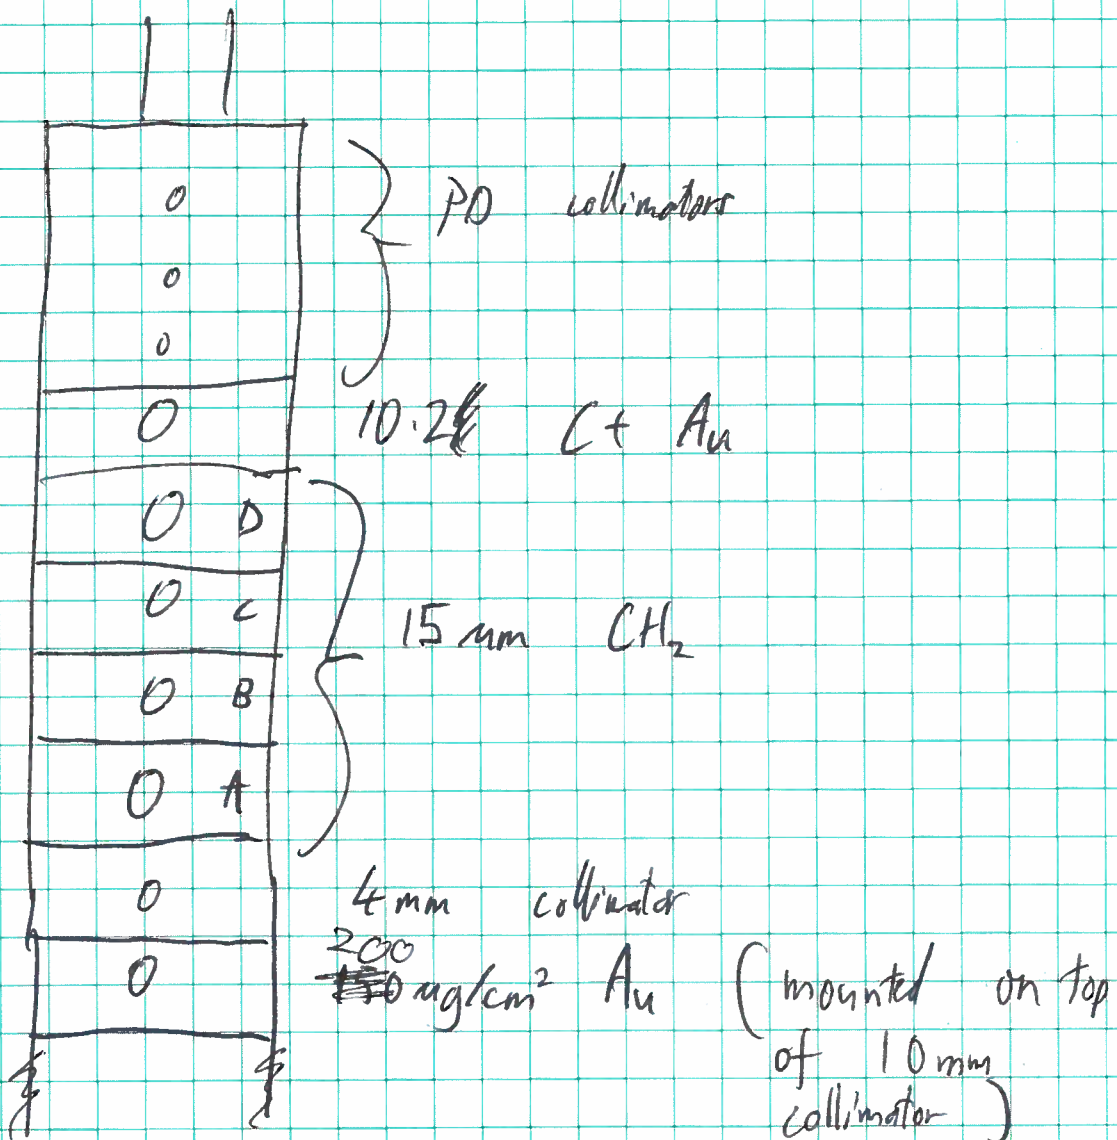 PD collimators
10.2 C + Au
D
C
15 um CH₂
B
A
4 mm collimator
200
ug/cm² Au (mounted on top
of 10 mm
collimator)